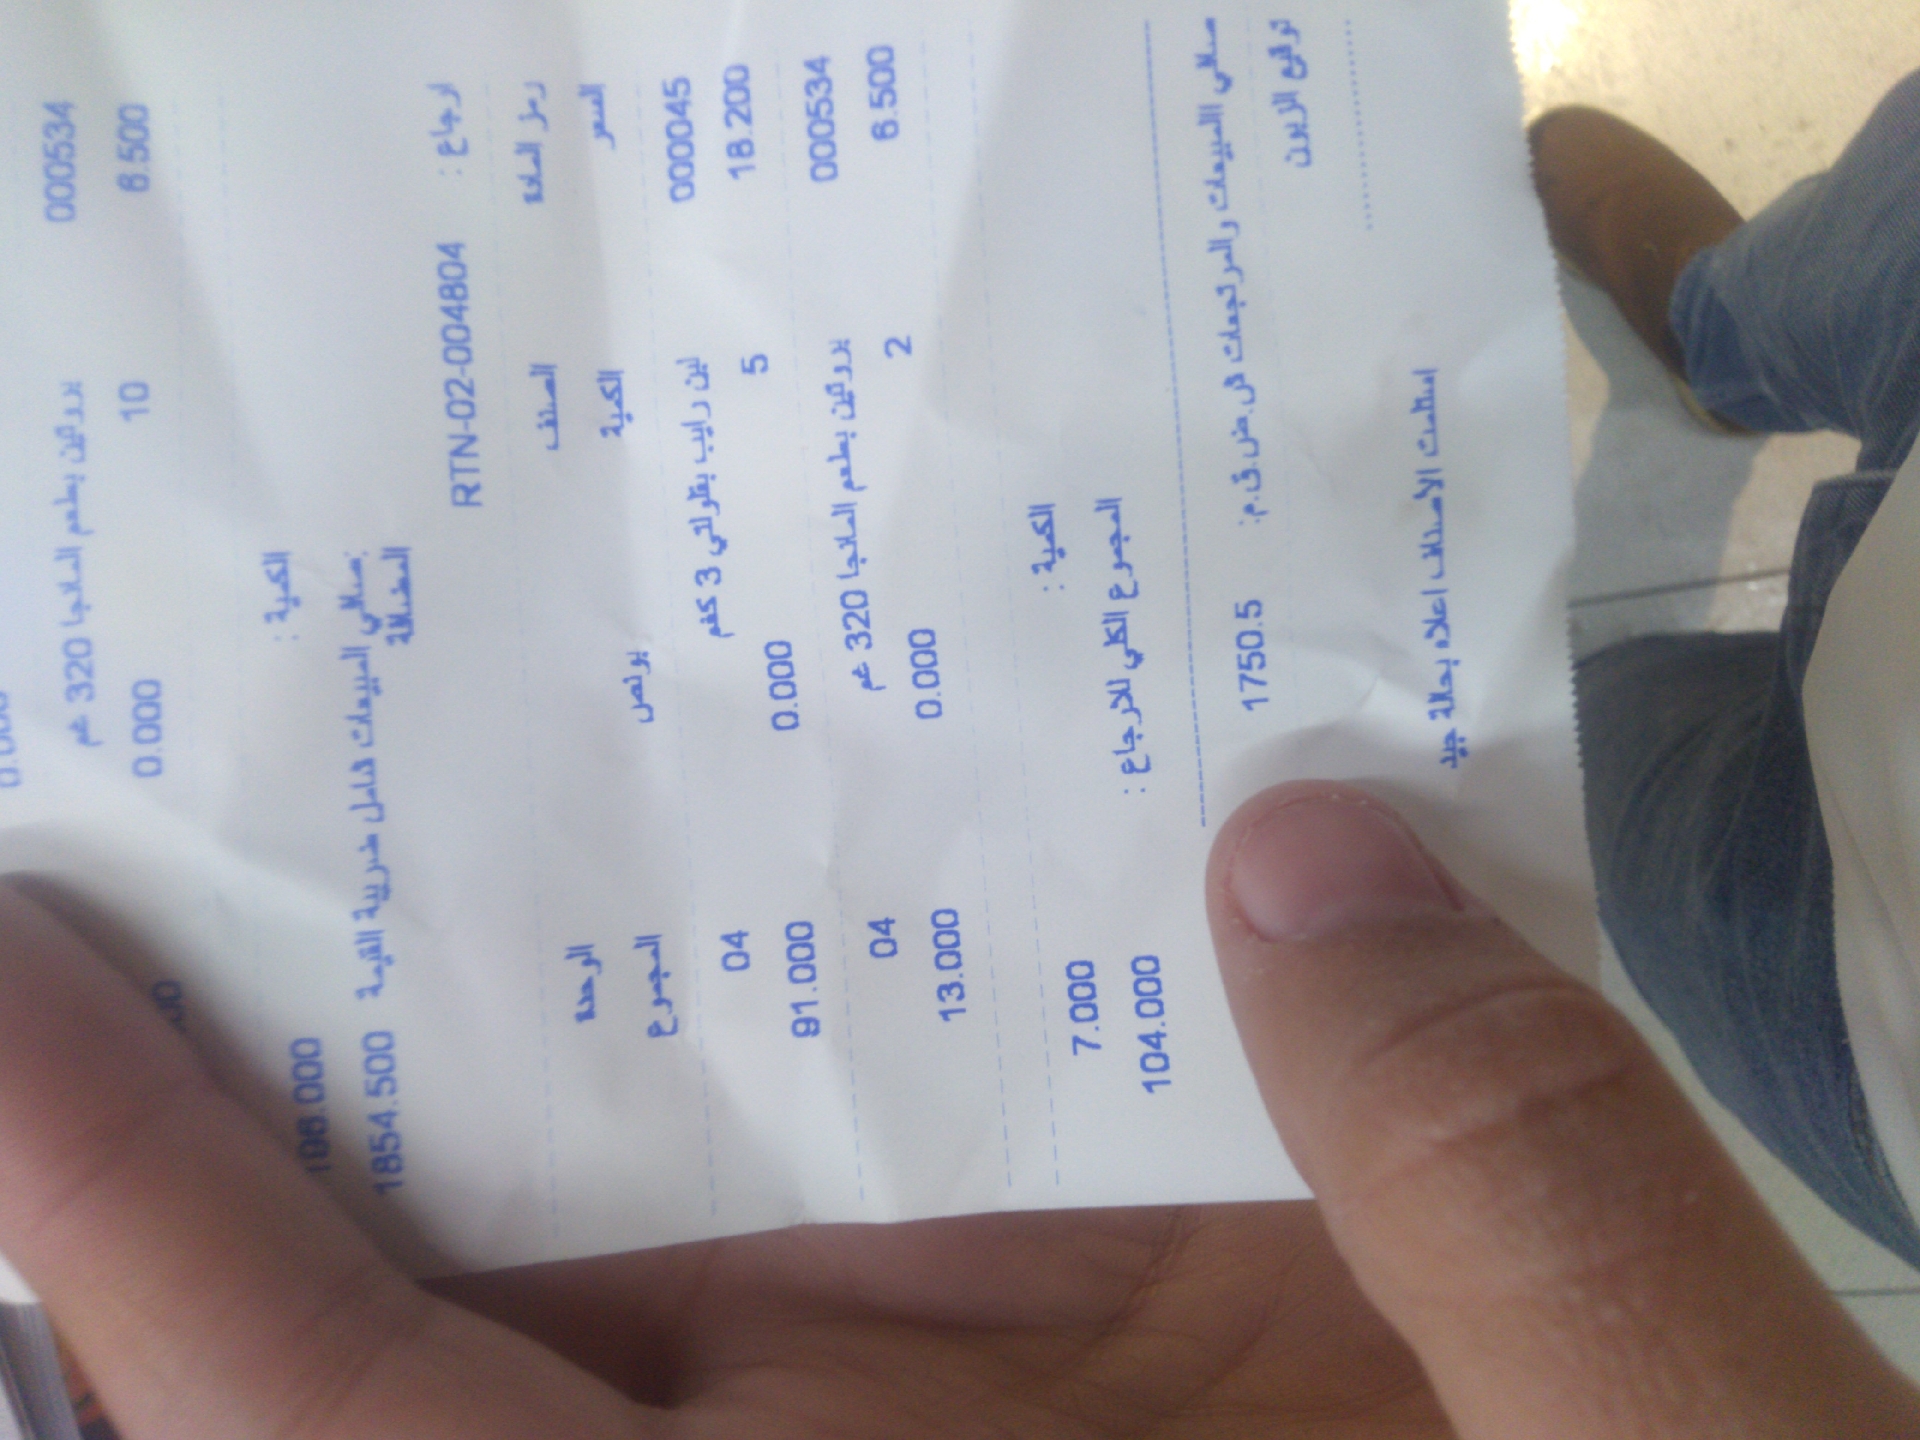 0.000
000534 بروتين بطعم المانجا 320 غم
6.500 10 0.000
الكمية : 198.000
صافي المبيعات شامل ضريبة القيمة المضافة: 1854.500
ارجاع : RTN-02-004804
رمز المادة الصنف الوحدة
السعر الكمية بونص المجموع
000045 لبن رايب بقلولتي 3 كغم 04
18.200 5 0.000 91.000
000534 بروتين بطعم المانجا 320 غم 04
6.500 2 0.000 13.000
الكمية : 7.000
المجموع الكلي للارجاع : 104.000
صافي المبيعات والمرتجعات ش.ض.ق.م: 1750.5
توقيع الزبون
استلمت الاصناف اعلاه بحالة جيد